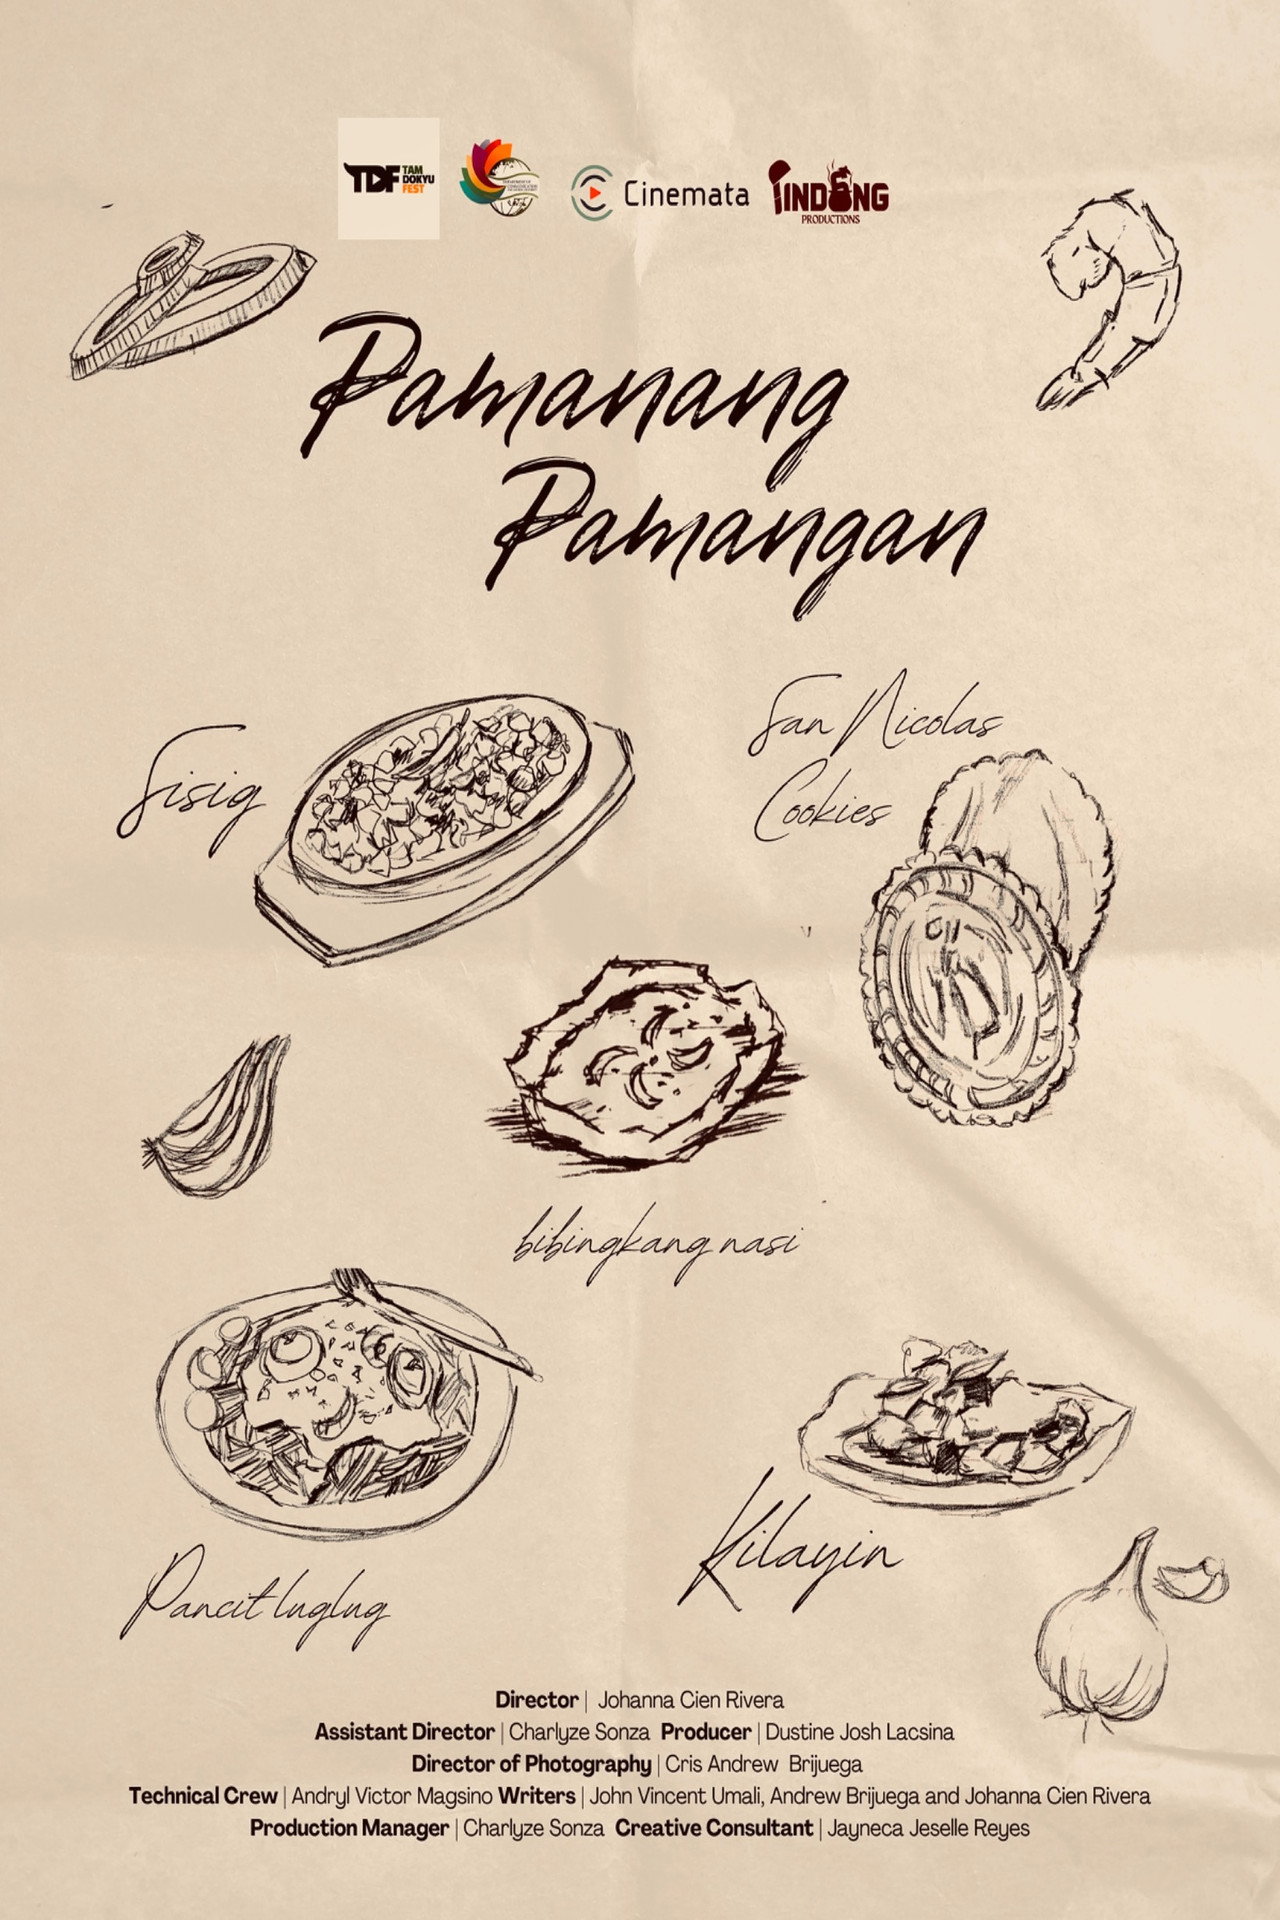 TDF TAM DOKYU FEST
Cinemata
PINDONG
PRODUCTIONS
Pamanang
Pamangan
Sisig
San Nicolas
Cookies
bibingkang nasi
Pancit luglug
Kilayin
Director | Johanna Cien Rivera
Assistant Director | Charlyze Sonza Producer | Dustine Josh Lacsina
Director of Photography | Cris Andrew Brijuega
Technical Crew | Andryl Victor Magsino Writers | John Vincent Umali, Andrew Brijuega and Johanna Cien Rivera
Production Manager | Charlyze Sonza Creative Consultant | Jayneca Jeselle Reyes